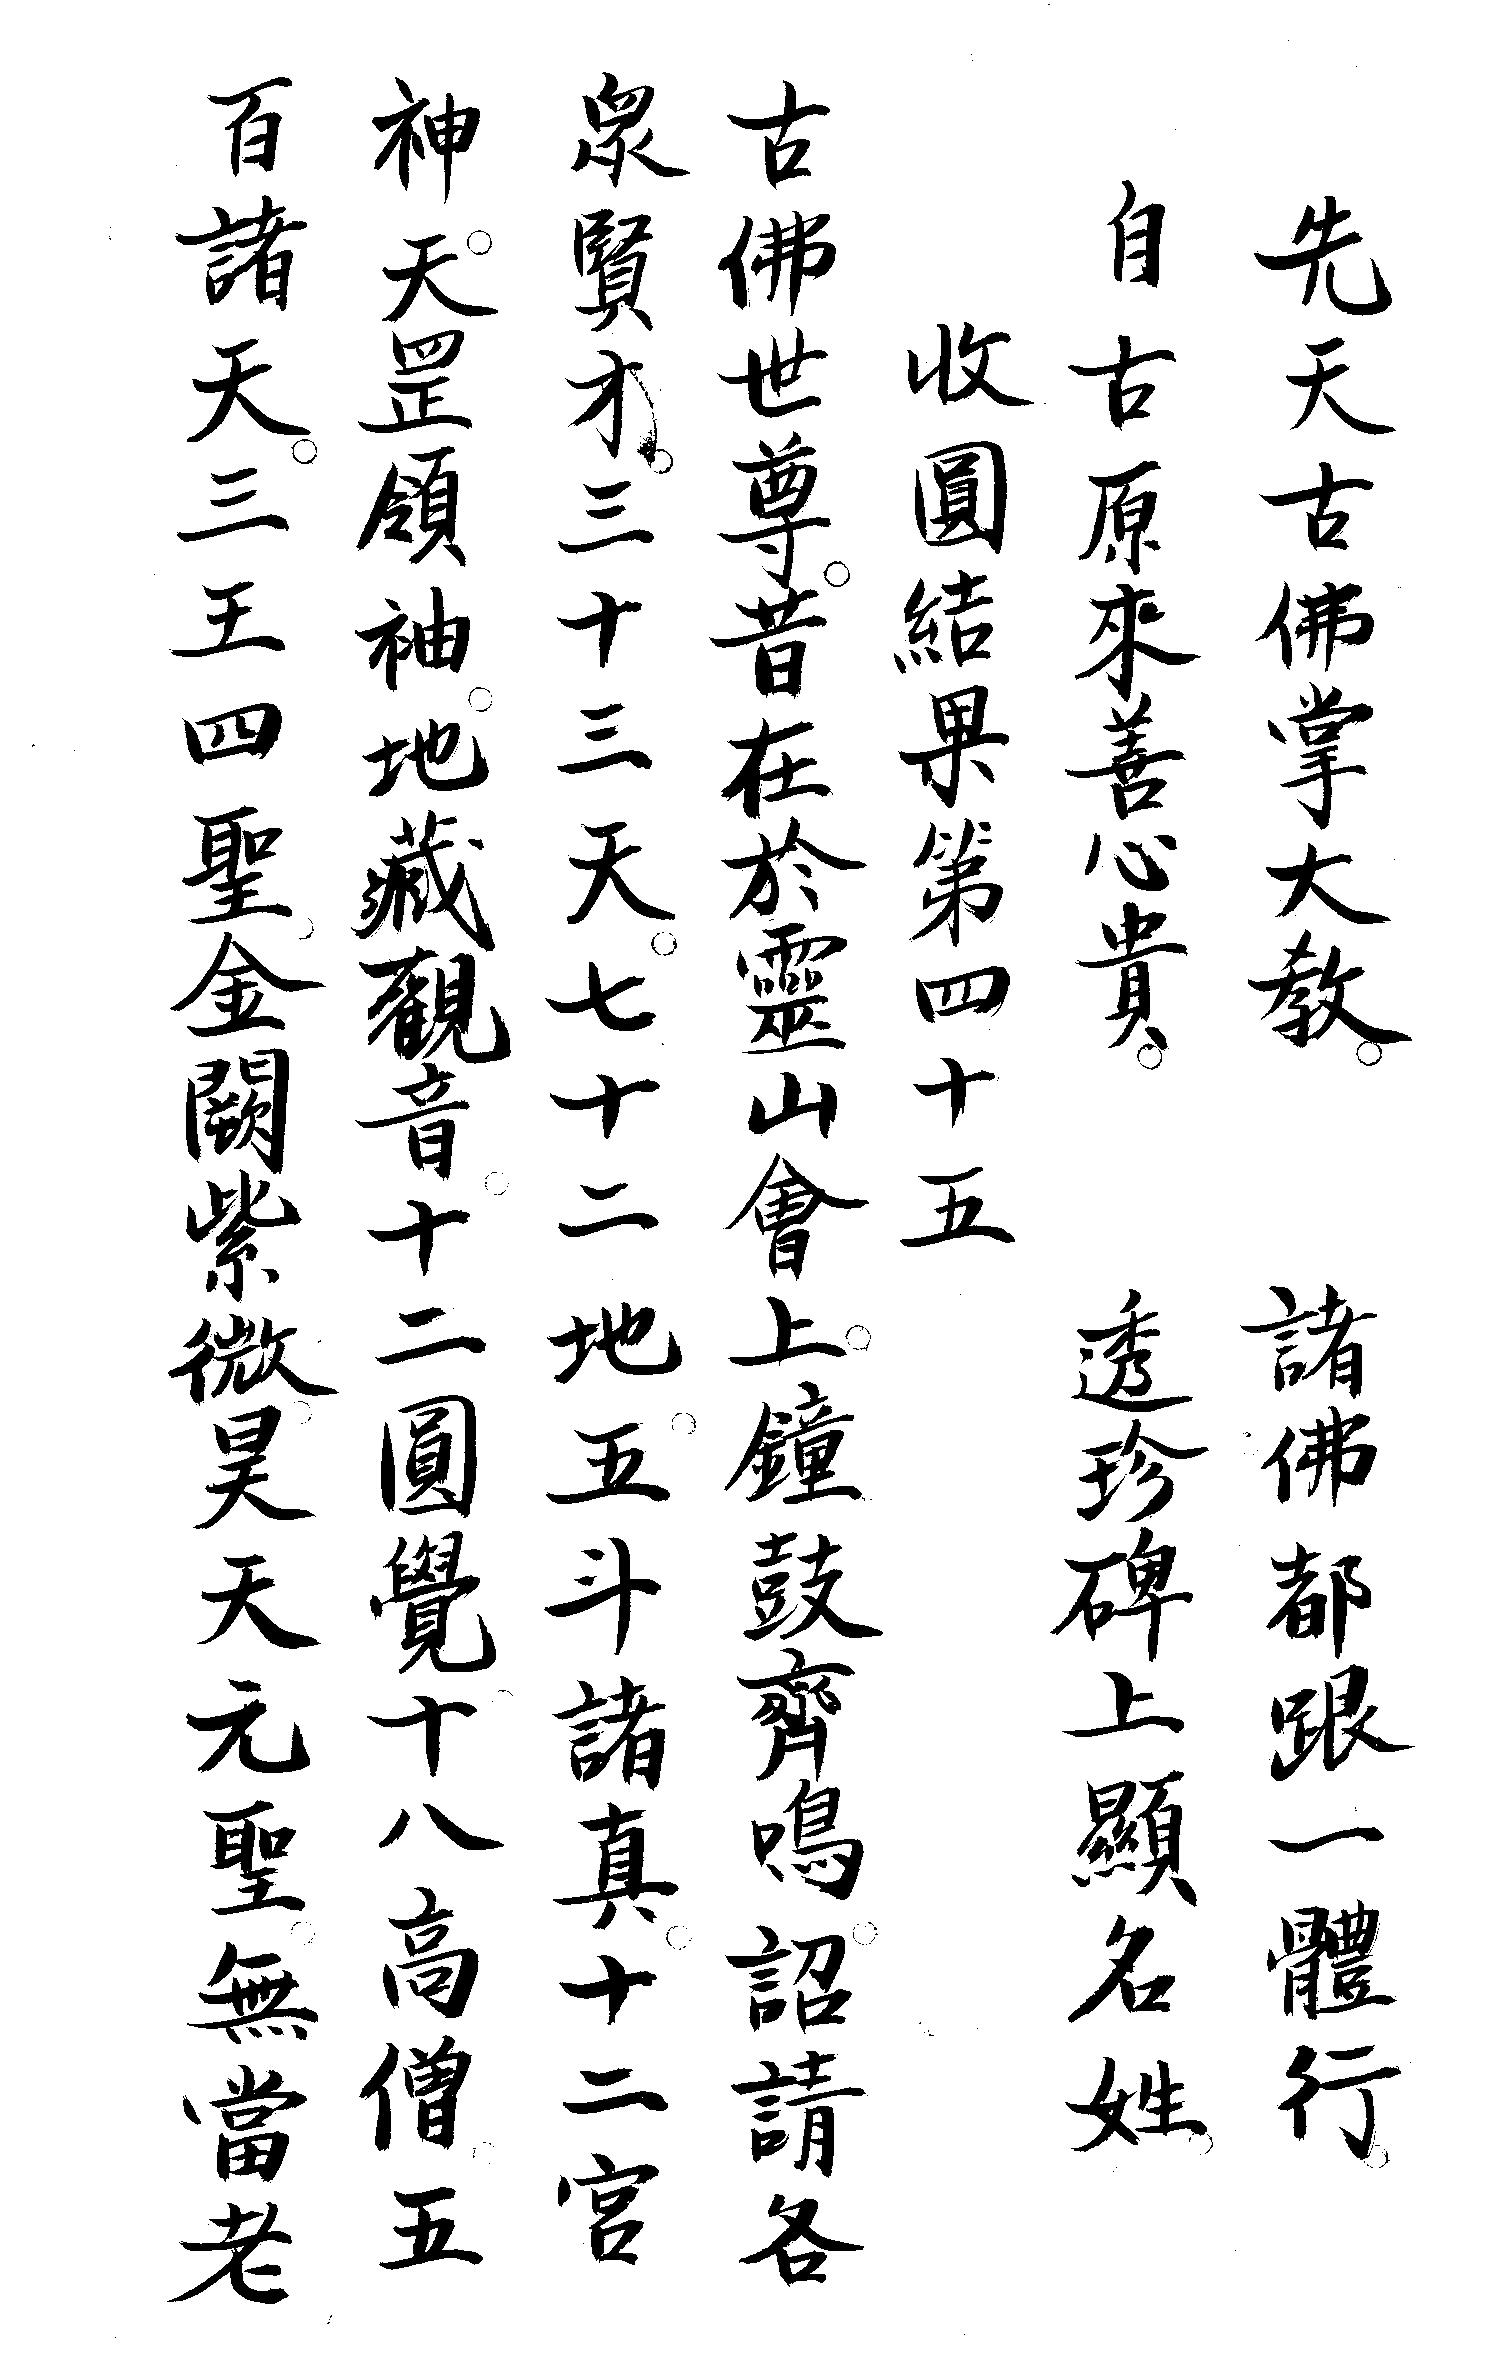 先天古佛掌大教。　諸佛都跟一體行。
自古原來善心貴。　透珍碑上顯名姓。
收圓結果第四十五
古佛世尊。昔在於靈山會上。鐘鼓齊鳴。詔請各
眾賢才。三十三天。七十二地。五斗諸真。十二宮
神。天罡領袖。地藏觀音。十二圓覺。十八高僧。五
百諸天。三王四聖。金闕紫微。昊天元聖。無當老